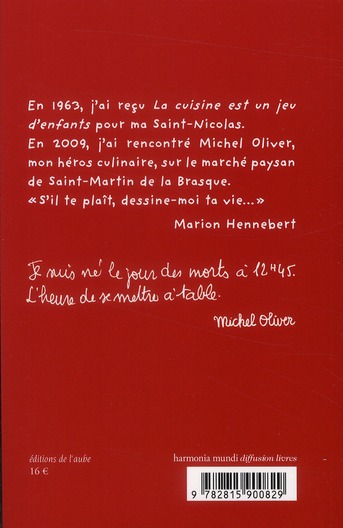 En 1963, j'ai reçu La cuisine est un jeu
d'enfants pour ma Saint-Nicolas.
En 2009, j'ai rencontré Michel Oliver,
mon héros culinaire, sur le marché paysan
de Saint-Martin de la Brasque.
«S'il te plaît, dessine-moi ta vie...»
Marion Hennebert
Je suis né le jour des morts à 12H45.
L'heure de se mettre à table.
Michel Oliver
éditions de l'aube
16 €
harmonia mundi diffusion livres
9 782815 900829